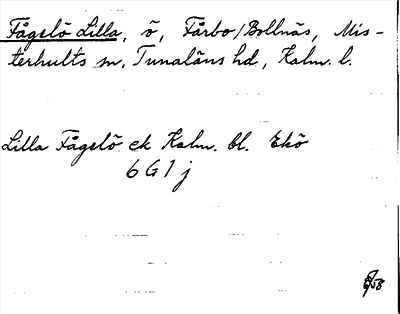 Fågelö Lilla, ö, Fårbo/Bollnäs, Mis-
terhults sn, Tunaläns hd, Kalm. l.
Lilla Fågelö ek Kalm. bl. Ekö
6G1j